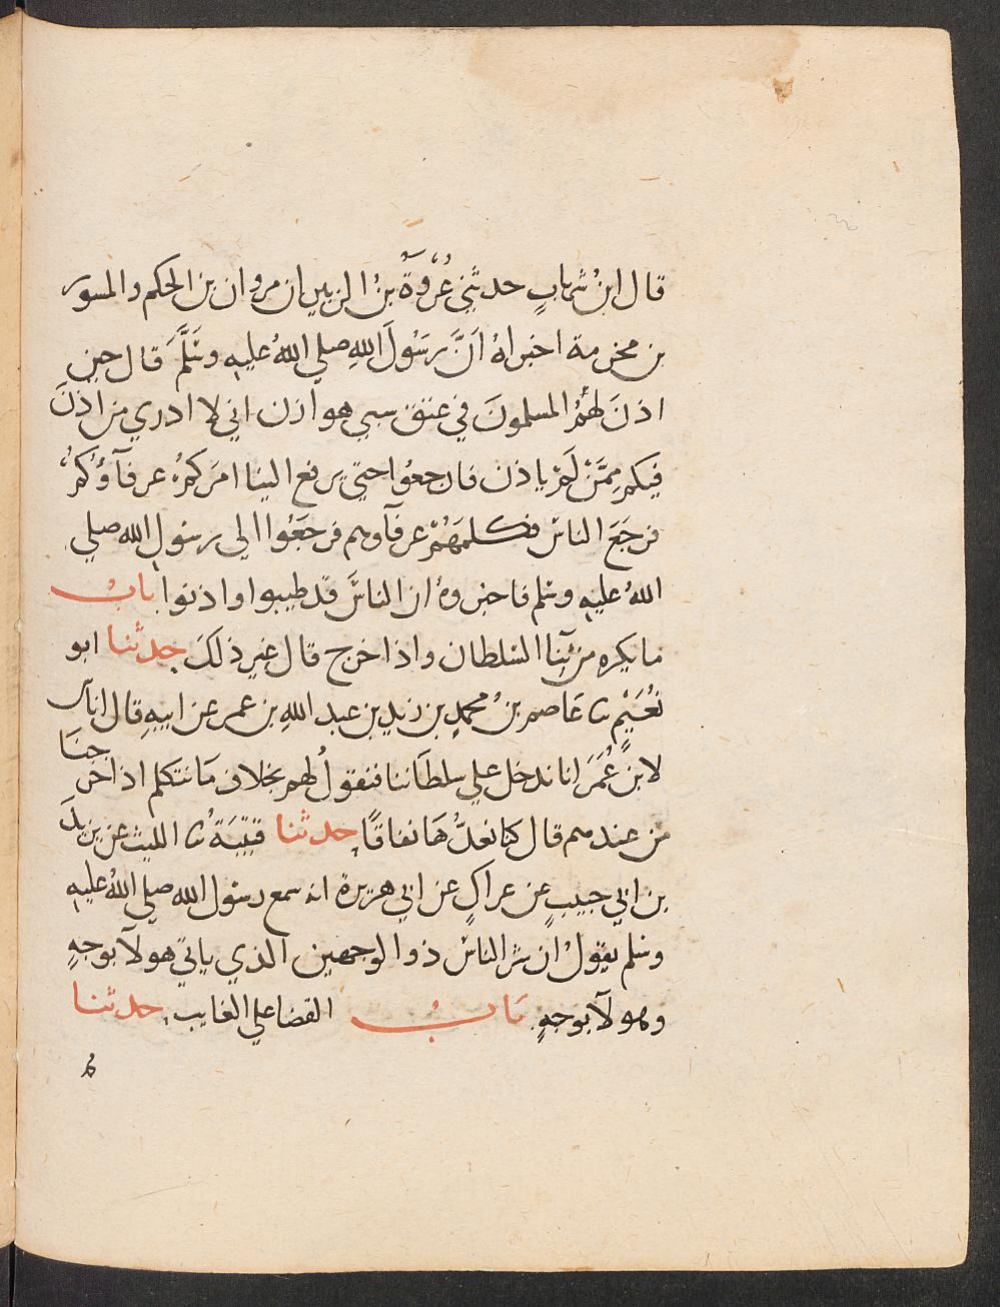 قال ابنُ شهابٍ حدثني عُرْوَةُ بنُ الزبير ان مروان بن الحكم والمسور
بن مخرمة اخبراهُ اَنَّ رسَوُلَ اللهِ صلي اللهُ عليهِ وسَلَّمَ قال حين
اذنَ لهُمُ المسلمونَ في عتق سبي هوازن اني لا ادري من اَذنَ
فيكم مِمَّنْ لَمْ ياذن فارجعُوا حتي يرفع الينا امرَكمُ عرفآؤُكمُ
فرجَعَ الناسُ فكلمهُمْ عرفآوهم فرجَعُوا الي رسُولِ الله صلي
اللهُ عليهِ وسلم فاخبروهُ ان الناسَ قد طيبوا واذنوا بابُ
ما يكره من ثَنا السُلطان واذا خرج قال غير ذلكَ حدثنا ابو
نُعَيْمٍ ثنا عَاصم بنُ محمدٍ بن زيد بن عبد اللهِ بن عمر عن ابيهِ قال اناس
لابن عُمَرَ انا ندخل علي سلطَاننا فنقولُ لهم بخلاف مَا نتكلم اذا خرجنَا
من عندهم قال كنا نعدُّهَا نفاقًا حدثنا قتيبَةُ ثنا الليث عن يزيدَ
بن ابي حبيبٍ عن عراكٍ عن ابي هريرة انه سمع رسُول الله صلي اللهُ عليهِ
وسلم يقولُ ان شر الناسُ ذو الوجهين الذي ياتي هولآ بوجهٍ
وهولآ بوجهٍ بَابُ القضا علي الغايب حدثنا